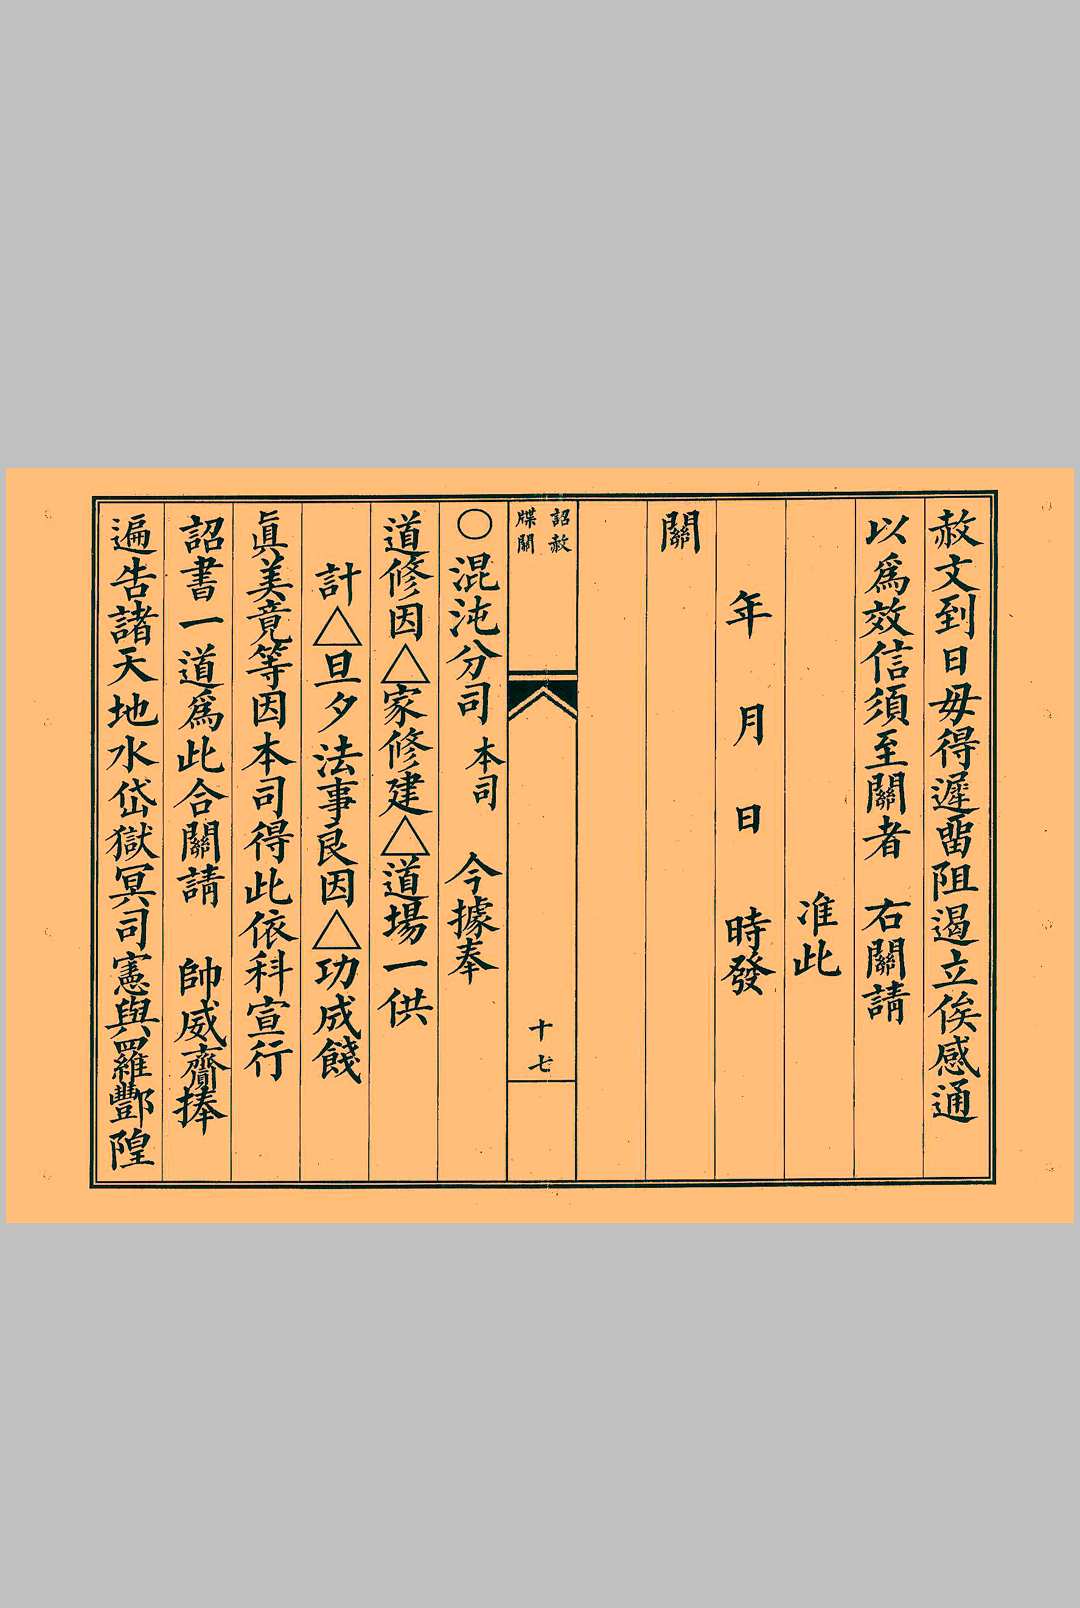 赦文到日毋得遲畱阻遏立俟感通
以爲效信須至關者　右關請
准此
年　月　日　時發
關
詔赦
牒關
十七
○混沌分司　本司　今據奉
道修因△家修建△道場一供
計△旦夕法事良因△功成餞
眞美竟等因本司得此依科宣行
詔書一道爲此合關請　帥威齎捧
遍告諸天地水岱獄冥司憲與羅酆隍